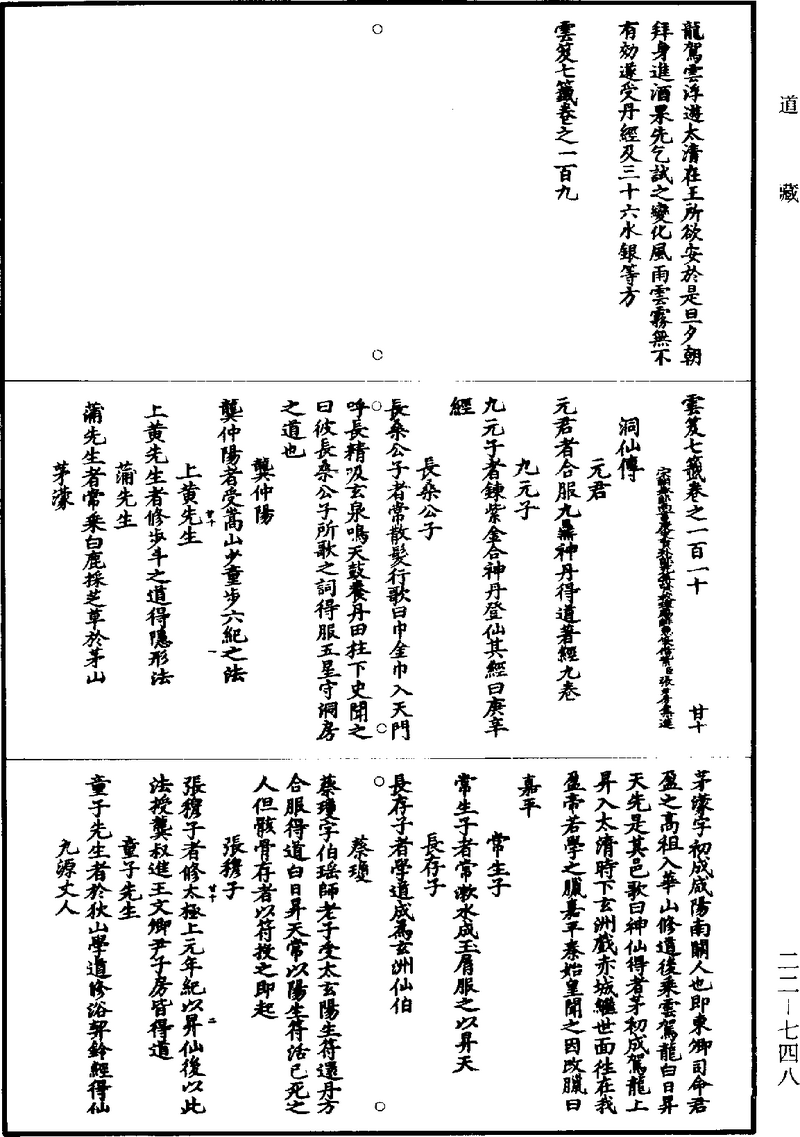 道藏
龍駕雲浮遊太清在王所欲安於是旦夕朝
拜身進酒果先乞試之變化風雨雲霧無不
有効遂受丹經及三十六水銀等方
雲笈七籤卷之一百九
雲笈七籤卷之一百一十
廿十
洞仙傳
元君
元君者合服九鼎神丹得道著經九卷
九元子
九元子者鍊紫金合神丹登仙其經曰庚辛
經
長桑公子
長桑公子者常散髮行歌曰巾金巾入天門
呼長精吸玄泉鳴天鼓養丹田柱下史聞之
曰彼長桑公子所歌之詞得服五星守洞房
之道也
龔仲陽
龔仲陽者受嵩山少童步六紀之法
上黃先生
廿十
一
上黃先生者修步斗之道得隱形法
蒲先生
蒲先生者常乘白鹿採芝草於茅山
茅濛
茅濛字初成咸陽南關人也即東卿司命君
盈之高祖入華山修道後乘雲駕龍白日昇
天先是其邑歌曰神仙得者茅初成駕龍上
昇入太清時下玄洲戲赤城繼世而往在我
盈帝若學之臘嘉平秦始皇聞之因改臘曰
嘉平
常生子
常生子者常漱水成玉屑服之以昇天
長存子
長存子者學道成為玄洲仙伯
蔡瓊
蔡瓊字伯瑤師老子受太玄陽生符還丹方
合服得道白日昇天常以陽生符活已死之
人但骸骨存者以符投之即起
張穆子
張穆子者修太極上元年紀以昇仙後以此
廿十
二
法授龔叔進王文卿尹子房皆得道
童子先生
童子先生者於狄山學道修浴契鈐經得仙
九源丈人
二二—七四八